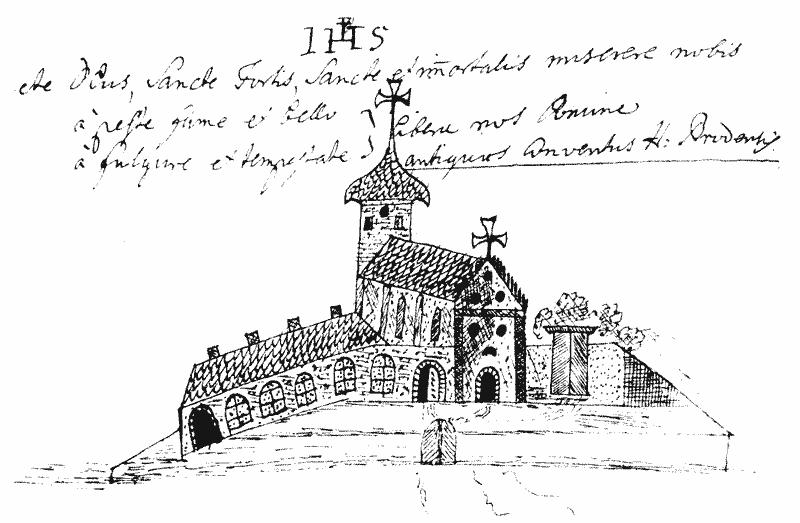 IHS
cte Deus, Sancte Fortis, Sancte et immortalis miserere nobis
à peste fame et bello } libera nos Domine
à fulgure et tempestate } antiquus Conventus H: Brodensis